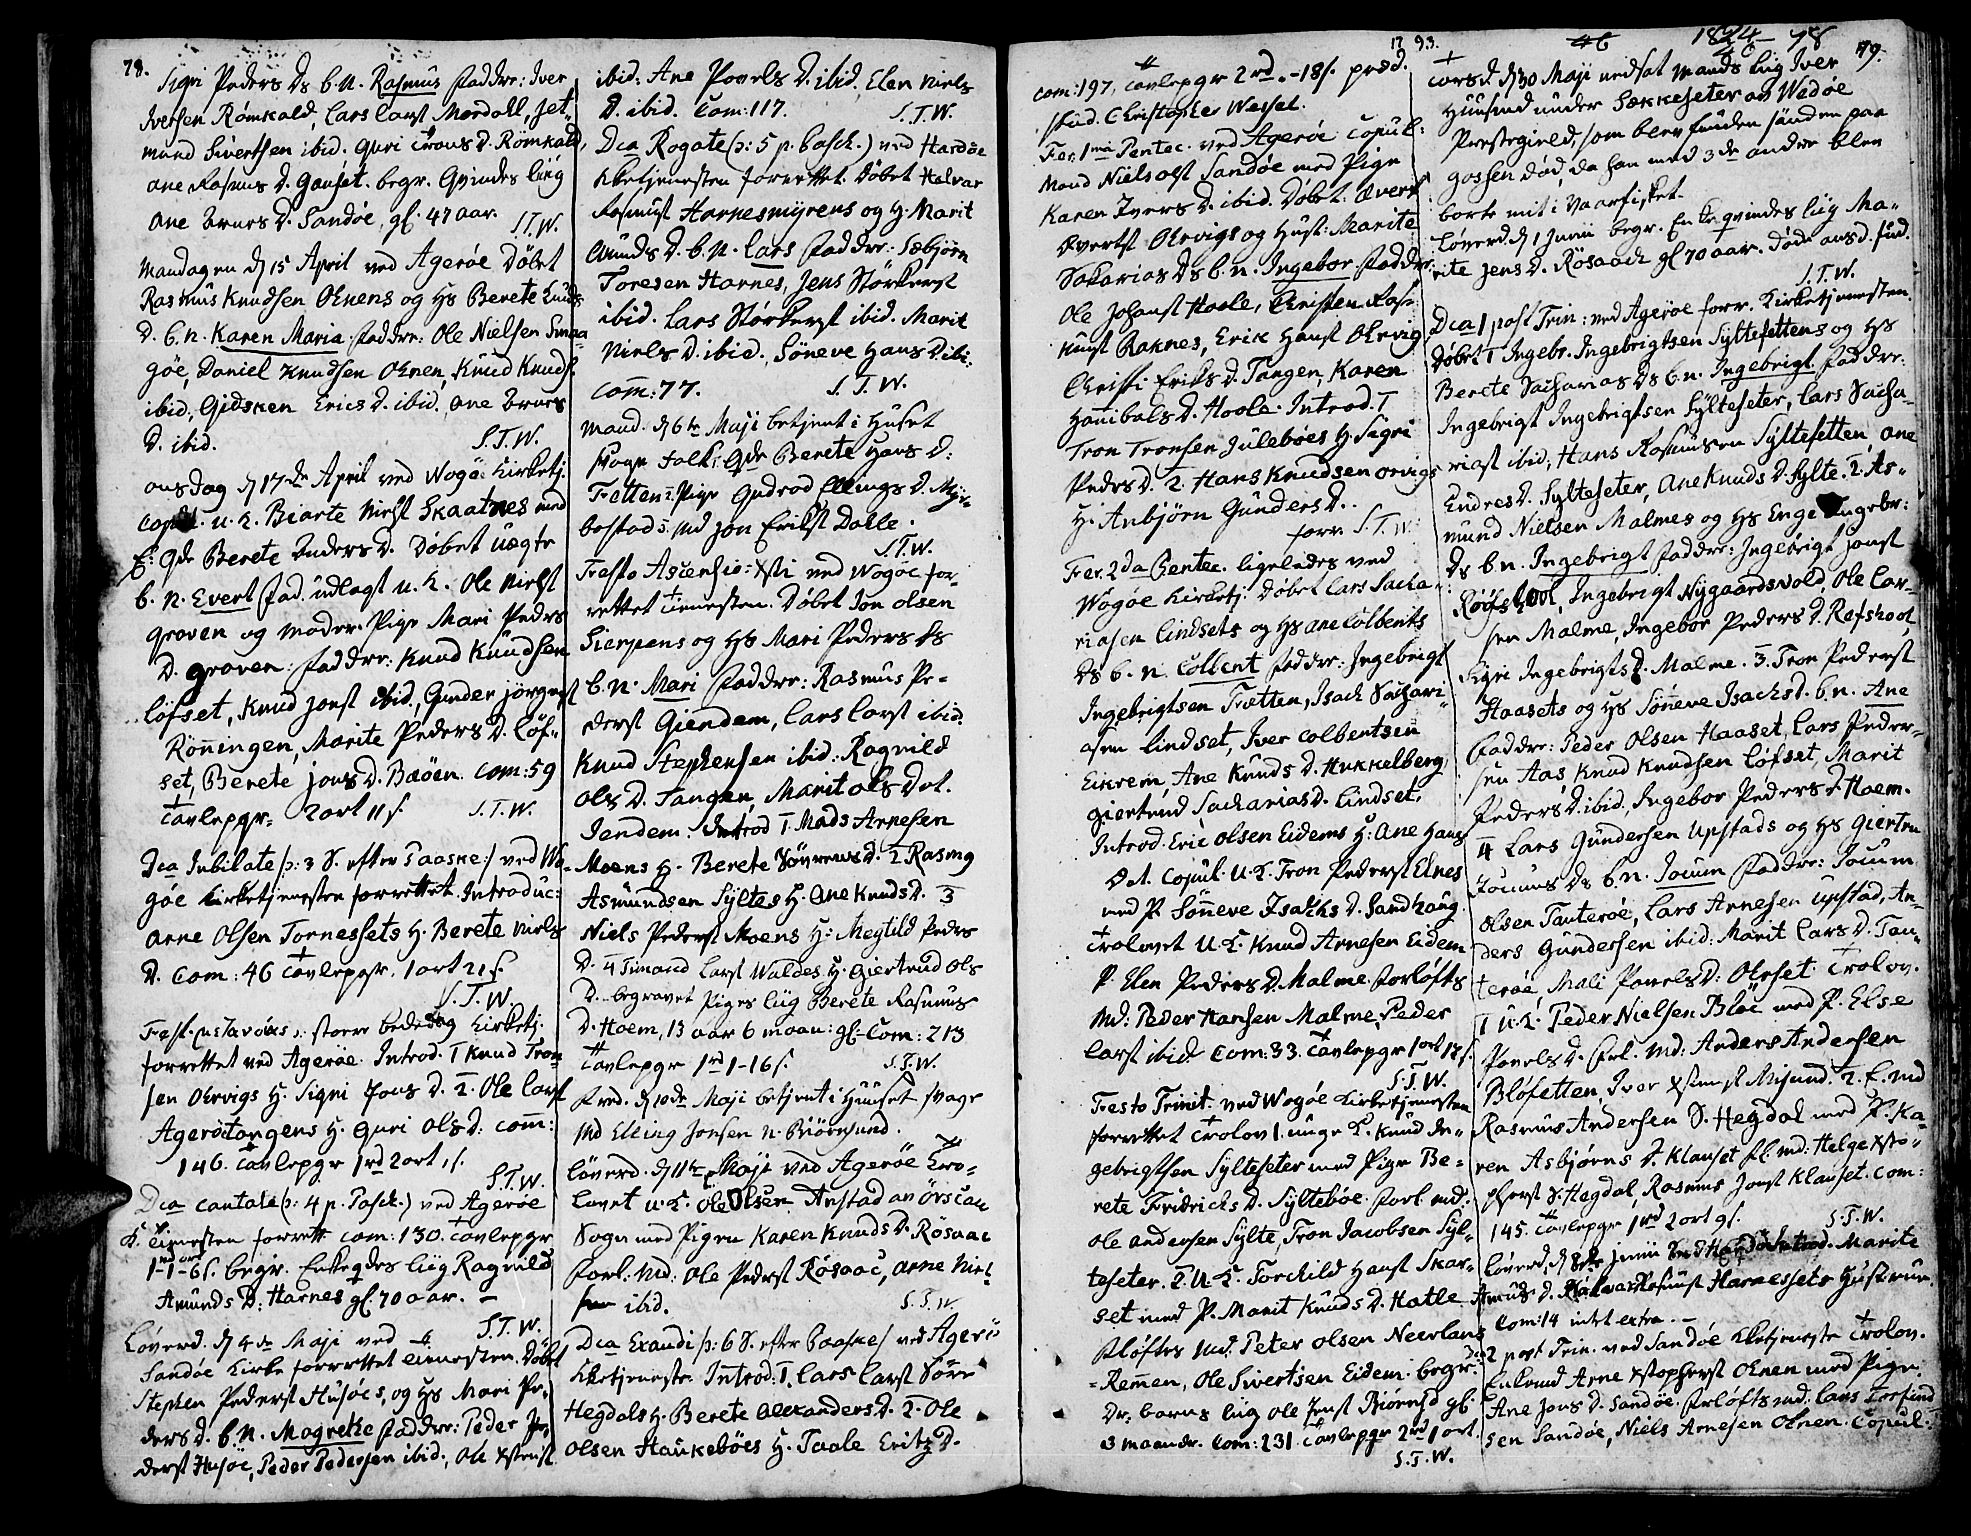 78.
Sigri Peders Ds b. N. Rasmus Faddre: Iver
Iversen Römkald, Lars Larsl Mordall, Jet-
mund Sivertsen ibid. Guri Trons D. Römkald,
Ane Rasmus D. Gauset. begr. Qvindes liig
Ane D. Sandöe, gl. 47 aar.
S.T.W.
Mandagen d 15 April ved Ageröe Döbet
Rasmus Knudsen Oknens og Hs Berete Knuds
D. b. n. Karen Maria Faddre: Ole Nielsen Smaa-
göe, Daniel Knudsen Oknen, Knud Knuds.
ibid, Gidsken Erics D. ibid, Ane
D. ibid.
S.T.W.
onsdag d 17de April ved Wogöe Kirketj.
Copul. u. K. Biarte Nielsl Skaatnes med
E: Qde Berete Enders D. Döbet uægte
b. N. Evert Fad. udlagt u. K. Ole Nielsl
Groven og Moder Pige Mari Peders
D. Groven: Faddre: Knud Knudsen
Löfset, Knud Jonsl ibid, Gunder Jörgensl
Rönningen, Marite Peders D. Löf-
set, Berete Jons D. Bæöen. Com: 59
Tavlepgr. 2 ort 11 s.
S.T.W.
Dca Jubilate (: 3 S. efter Paaske:) ved Wo-
göe Kirketjenesten forrettet. Introduc:
Arne Olsen Tornessets H. Berete Niels
D. Com: 46 Tavlepgr. 1 ort 21 s.
S.T.W.
store bededag Kirketj.
forrettet ved Ageröe. Introd. 1 Knud Tron-
sen Okrvigs H. Signi Jons D. 2. Ole Larsl
Ageröetangens H. Guri Ols D. Com:
146. Tavlepgr 1 rd 2 ort 1 s.
S.T.W.
Dca Cantate (: 4 p. Pasch.) ved Ageröe
K. Tienesten forrett Com: 130. Tavlepgr
1-1-6 s. begr. Enkeqdes liig Ragnild
Amunds D. Harnes gl. 70 aar. -
S.T.W.
Löverd. d 4de Maji ved
Sandöe Kirke forrettet tienesten. Döbet
Stephen Pedersl Husöes, og Hs Mari Pe-
ders D. b. N. Magrethe Faddre: Peder Pe-
dersl Husöe, Peder Pedersen ibid., Ole Xstensl
ibid: Ane Povels D. ibid, Elen Niels
D. ibid. Com: 117.
S.T.W.
Dca Rogate (: 5 p. Pasch.) ved Hardöe
Kketjenesten forrettet. Döbet Halvar
Rasmusl Harnesmyrens og H. Marit
Amunds D. b. N. Lars Faddre: Sæbjörn
Toresen Harnes, Jens Störkersl
ibid. Lars Störkersl ibid. Marit
Niels D. ibid. Söneve Hans D ibi:
Com: 77.
S.T.W.
Mand. d 6te Maji betjent i Huset
svage Folk: Qde Berete Hans D.
Fætten 2. Pige Gudrod Ellings D. Myr-
bostad 3. Md Jon Eriksl Dalle.
S.T.W.
Festo Ascensio: Xsti ved Wogöe for-
rettet tienesten. Döbet Jon Olsen
Sierpens og Hs Mari Peders Ds
b. N. Mari Faddre: Rasmus Pe-
dersl Giendem, Lars Larsl ibid:
Knud Stephensen ibid: Ragnild
Ols D. Tangen, Marit Ols Dot.
Jendem. Introd 1. Mads Arnesen
Moens H. Berete D. 2 Rasmg
Asmundsen Syltes H. Ane Knuds D. 3
Niels Pedersl Moens H: Megtild Peders
D. 4 Timand Larsl Waldes H. Giertrud Ols
D. begravet Piges liig Berete Rasmus
D. Hoem, 13 aar 6 maan: gl. Com: 213
Tavlepgr 1 rd 1-16 s.
S.T.W.
Fred. d 10de Maji betjent i Huuset svage
Md Elling Jonsen n. Biörnsund.
Löverd. d 11te Maji ved Ageröe Tro-
lovet u. K. Ole Olsen Anstad an örscau
Sogn med Pigen Karen Knuds D. Rösaac
Forl. Md: Ole Pedersl Rösaac, Arne Niel-
ibid.
S.T.W.
Dca Exandi (: 6 S. efter Paaske) ved Ageröe
Kketjeneste. Introd: 1. Lars Larsl Söre
Hegdals H. Berete Alexanders D. 2. Ole
Olsen Haukeböes H. Taale Eritz D.
17 93.
Com: 197, Tavlepgr 2 rd. -18 s. præd.
stud. Christopher Wessel.
Fer. 1mi Pentec. ved Ageröe Copul:
Mand Niels Olsl Sandöe med Pige
Karen Ivers D. ibid. Döbet. Evert
Evertsl Okrvigs og Husl: Marite
Sakarias Ds b. n. Ingebor Faddre:
Ole Johansl Hoole, Christen Ras-
musl Raknes, Erik Hansl Okrvig
Christi Eriks D. Tangen, Karen
Hanibals D. Hoole. Introd. 1
Tron Tronsen Juleböes H. Sigri
Peders D. 2. Hans Knudsen Orvigs
H. Anbjörn Gunders D.
forr. S.T.W.
Fer. 2da Pentec. ligeledes ved
Wogöe Kirketj. Döbet Lars Sacha-
riasen Lindsets og Hs Ane Colbents
Ds b. n. Colbent Faddre: Ingebrigt
Ingebrigtsen Frætten, Isach Sachari-
asen Lindset, Iver Colbentsen
Eikrem, Ane Knuds D. Hukkelberg,
Giertrud Sacharias D. Lindset,
Introd. Eric Olsen Eidems H: Ane Hans
Dot. Copul. U. K. Tron Pedersl Elnes
med P. Söneve Isachs D. Sandhaug.
Trolovet U. K. Knud Arnesen Eidem
P. Elen Peders D. Malme Forlöfts
Md: Peder Hansen Malme, Peder
Larsl ibid Com: 33. Tavlepgr 1 ort 17 s.
S.T.W.
Festo Trinit. ved Wogöe Kirketjenesten
forrettet Trolov 1. unge K. Knud In-
gebrigtsen Sylteseter med Pige Be-
rete Fridrichs D. Sylteböe. Forl. md.
Ole Andersen Sylte, Tron Jacobsen Syl-
teseter. 2. U. K. Torchild Hansl Skar-
set med P. Marit Knuds D. Hatle
Flöftes Md. Peter Olsen Neerlans
Remen, Ole Swertsen Eidem. begr:
Dr. barns liig Ole Biörns D gl.
3 maander. Com: 231. Tavlepgr 2 rd 1 ort.
S.T.W.
46
1824 - 78
79.
Torsd. d 30 Maji nedsat mands liig Iver
Huusmd under Sækkeseter an Wedöe
Prestegield, som blev funden sönden paa
Gossen död, da han med 3de andre blev
borte mit i Vaarfisket.
Löverd. d 1 Junii begr. Enkeqvindes liig Ma-
rite Jens D. Rösaack gl 70 aar. döde
S.T.W.
Dca 1 post Trin: ved Ageröe forr. Kirketjenesten.
Döbet 1 Ingebr. Ingebrigtsen Syltesettens og Hs
Berete Sacharias Ds b. n. Ingebrigt Faddre:
Ingebrigt Ingebrigtsen Sylteseter, Lars Sacha-
riasl ibid, Hans Rasmusen Syltesetten, Ane
Endres D. Sylteseter, Ane Knuds D. Sylte. 2. As-
mund Nielsen Malmes og Hs Enge Ingebr:
Ds b. n. Ingebrigt Faddre: Ingebrigt Jonsl
Röfshool, Ingebrigt Nygaardsvold, Ole Lar-
sen Malme, Ingebor Peders D. Refshool,
Sigri Ingebrigts D. Malme. 3. Tron Pedersl
Haasets og Hs Söneve Isachs D. b. n. Ane
Faddre: Peder Olsen Haaset, Lars Peder-
sen Aas Knud Knudsen Löfset, Marit
Peders D. ibid, Ingebor Peders D Hoem.
4 Lars Gundersen Upstads og Hs Giertru
Jocums Ds b. n. Jocum Faddre: Jocum
Olsen Tauteröe, Lars Arnesen Upstad, An-
ders Gundersen ibid: Marit Lars D. Tau-
teröe Mali Povels D: Okrset. Trolov.
1 U. K. Peder Nielsen Blöe med P. Else
Povels D. Forl. Md: Anders Andersen
Blöfetten, Iver Xstensl Misund. 2. E. md
Rasmus Andersen S. Hegdal med P. Ka-
ren Asbjörns D. Klauset fl. md: Helge Xsto-
phersl S. Hegdal, Rasmus Jonsl Klauset. Com:
145. Tavlepgr 1 rd 2 ort 9 s.
S.T.W.
Löverd. d 8de Junii Introd. Marite
Amuds D. Halvar Rasmusl Harnessets Hustrue.
Com: 14 intet extra. -
Dca 2 post Trin. ved Sandöe Kketjeneste Trolov.
Enkemd Arne Xstophersl Oknen med Pige
Ane Jons D. Sandöe. Forlöfts md: Lars Torfind-
sen Sandöe, Niels Arnesen Oknen. Copul: